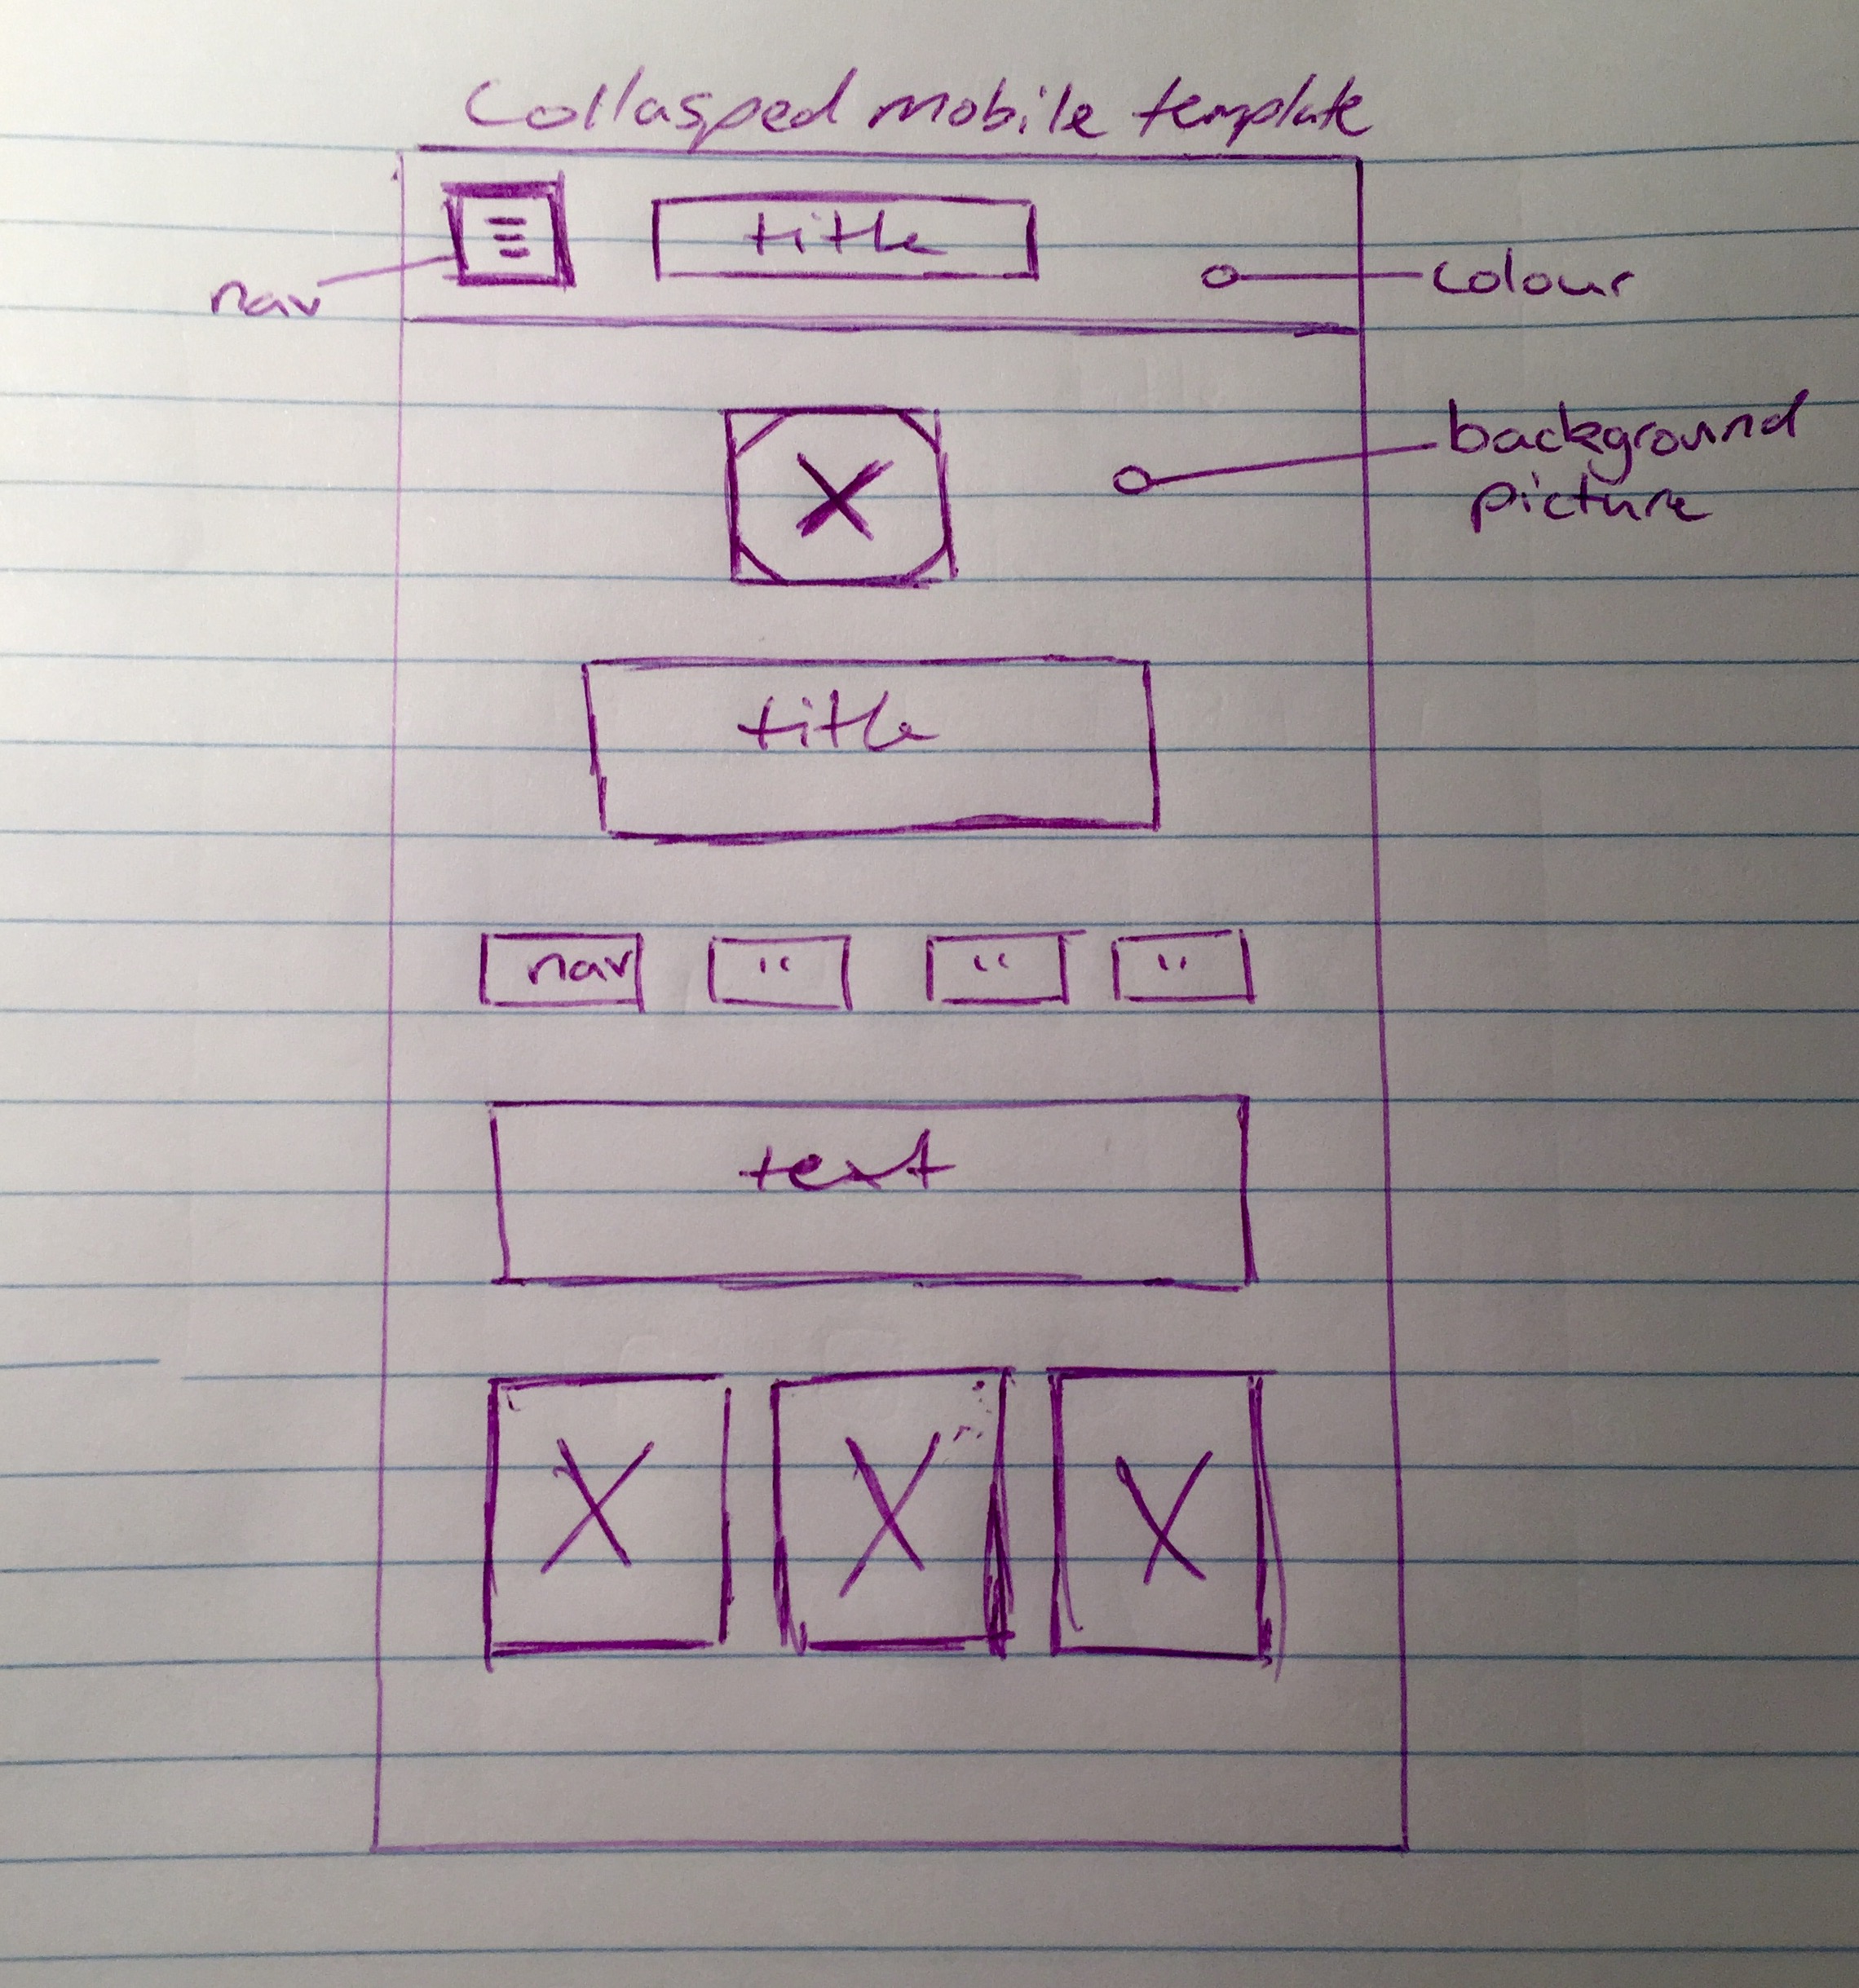 Collasped mobile template
title
nav
colour
background
picture
title
nav " " "
text